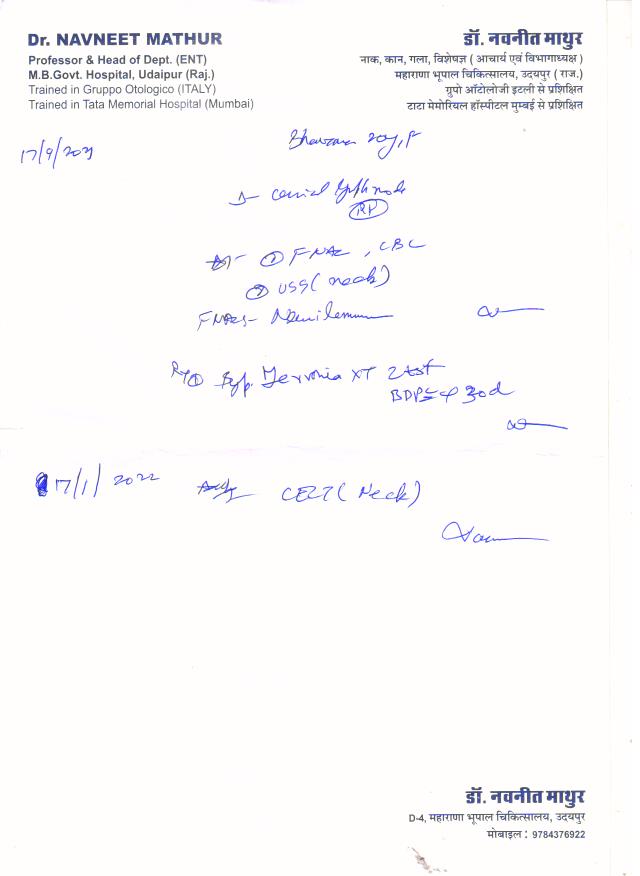 Dr. NAVNEET MATHUR
Professor & Head of Dept. (ENT)
M.B.Govt. Hospital, Udaipur (Raj.)
Trained in Gruppo Otologico (ITALY)
Trained in Tata Memorial Hospital (Mumbai)
डॉ. नवनीत माथुर
नाक, कान, गला, विशेषज्ञ ( आचार्य एवं विभागाध्यक्ष )
महाराणा भूपाल चिकित्सालय, उदयपुर ( राज.)
ग्रुपो ऑटोलोजी इटली से प्रशिक्षित
टाटा मेमोरियल हॉस्पीटल मुम्बई से प्रशिक्षित
17/9/2021
node
① FNAC , CBC
② USG (neck)
FNAC -
Rx ① Syp. XT 2 tsf
30d
17/1/2022
CECT (Neck)
डॉ. नवनीत माथुर
D-4, महाराणा भूपाल चिकित्सालय, उदयपुर
मोबाइल : 9784376922